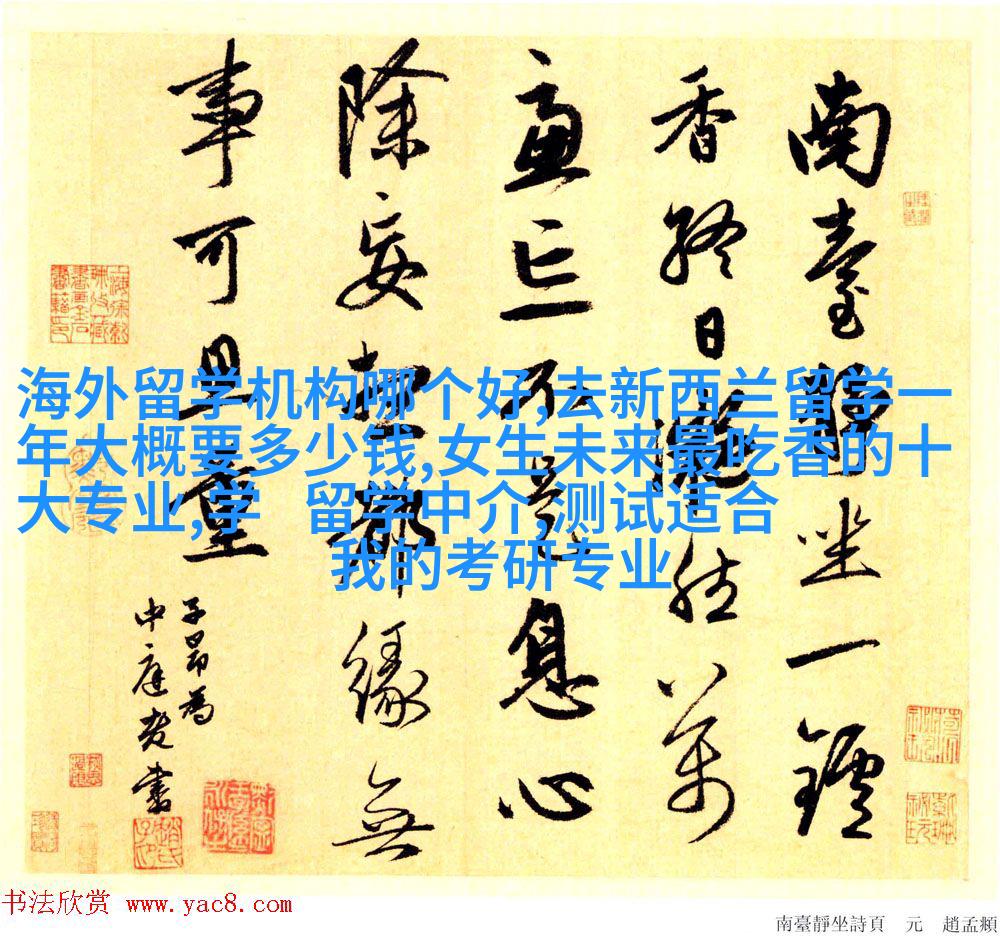 南臺靜坐一鑪
香終日凝然萬
慮亡不是息心
除妄想都緣無
事可思量
子昂為
中庭老書
海外留学机构哪个好,去新西兰留学一
年大概要多少钱,女生未来最吃香的十
大专业,学 留学中介,测试适合
我的考研专业
书法欣赏 www.yac8.com
南臺靜坐詩頁 元 趙孟頫